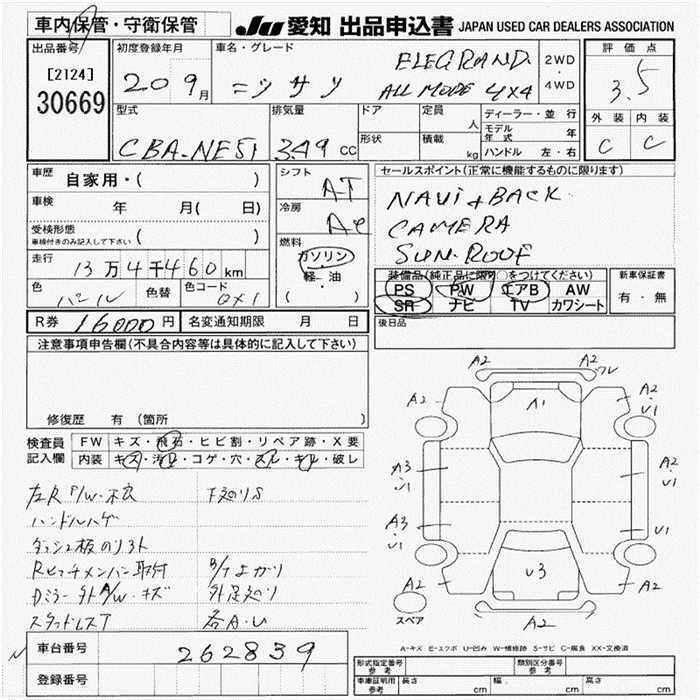 車内保管・守衛保管
JU 愛知 出品申込書 JAPAN USED CAR DEALERS ASSOCIATION
出品番号
[2124]
30669
初度登録年月
20 9月
車名・グレード
ニッサン
ELEGRAND
ALL MODE 4X4
2WD
・
4WD
評価点
3.5
外装 内装
C C
型式
CBA-NE51
排気量
349 CC
ドア
定員
人
形状
積載
kg
ディーラー・並行
モデル年式 年
ハンドル 左・右
車歴
自家用・( )
車検
年 月( 日)
受検形態
車検付きのみ記入して下さい ( )
走行
13万4千460km
色
パール
色替
色コード
QX1
シフト
A-T
冷房
AC
燃料
ガソリン
・
軽・油
( )
セールスポイント(正常に機能するものに限ります)
NAVi & BACK
CAMERA
SUN-ROOF
装備品(純正品に限り○をつけてください)
PS PW エアB AW
SR ナビ TV カワシート
新車保証書
有・無
R券 16000円
名変通知期限 月 日
後日品
注意事項申告欄(不具合内容等は具体的に記入して下さい)
修復歴 有(箇所 )
検査員
記入欄
FW キズ・飛石・ヒビ割・リペア跡・X要
内装 キズ・汚れ・コゲ・穴・スレ・キレ・破レ
ハンドルハゲ
Rヒッチメンバー取付
Dミラー外
A/W・キズ
スタッドレスT
各A・U
A2
A2
A2
A1
A2
U1
A3
U1
A2
U1
A3
U1
U1
U3
A2
A2
A2
スペア
A-キズ E-エクボ U-凹み W-補修跡 S-サビ C-腐食 XX-交換済
車台番号
262839
登録番号
形式指定番号
参考
類別区分番号
参考
車庫証明用
参考
長さ cm
幅 cm
高さ cm